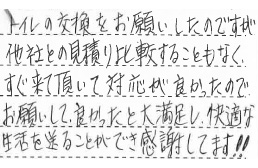 トイレの交換をお願いしたのですが
他社との見積り比較することもなく、
すぐ来て頂いて対応が良かったので
お願いして、良かったと大満足し、快適な
生活を送ることができ感謝してます!!